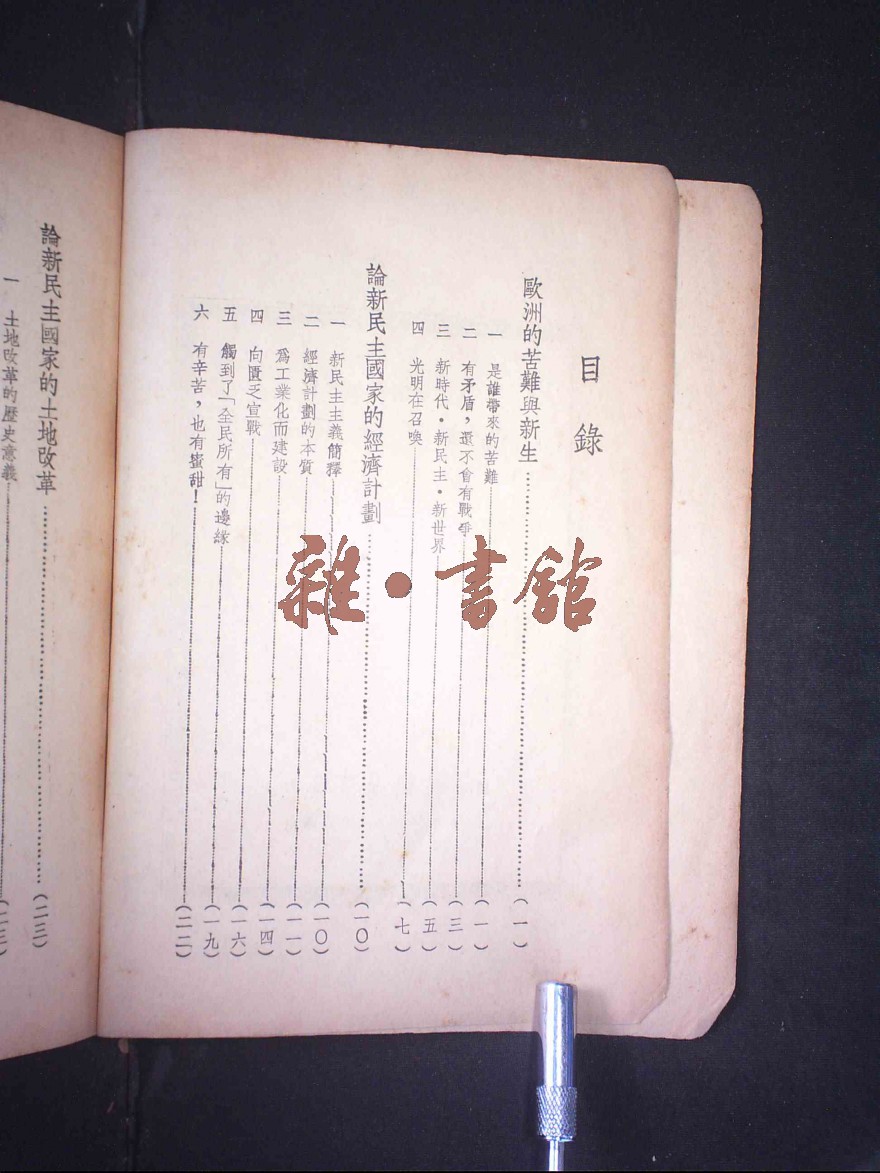 目錄
歐洲的苦難與新生……(一)
一 是誰帶來的苦難……(一)
二 有矛盾,還不會有戰爭……(三)
三 新時代·新民主·新世界……(五)
四 光明在召喚……(七)
論新民主國家的經濟計劃……(一〇)
一 新民主主義簡釋……(一〇)
二 經濟計劃的本質……(一一)
三 爲工業化而建設……(一四)
四 向匱乏宣戰……(一六)
五 觸到了「全民所有」的邊緣……(一九)
六 有辛苦,也有蜜甜!……(二二)
論新民主國家的土地改革……(二三)
一 土地改革的歷史意義……(二三)
雜·書館